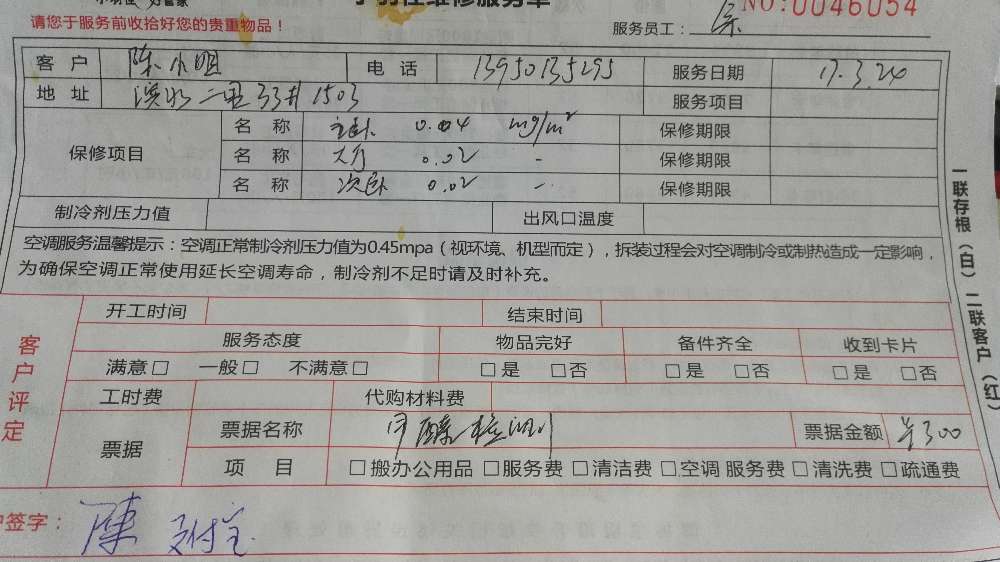 请您于服务前收拾好您的贵重物品！
服务员工： NO:0046054
客户 陈小姐 电话 13950135295 服务日期 17.3.24
地址 1503 服务项目
保修项目 名称 主卧 0.04 mg/m³ 保修期限
名称 大厅 0.02 - 保修期限
名称 次卧 0.02 - 保修期限
制冷剂压力值 出风口温度
空调服务温馨提示：空调正常制冷剂压力值为0.45mpa（视环境、机型而定），拆装过程会对空调制冷或制热造成一定影响，
为确保空调正常使用延长空调寿命，制冷剂不足时请及时补充。
一联存根（白）二联客户（红）
客户评定
开工时间 结束时间
服务态度 物品完好 备件齐全 收到卡片
满意□ 一般□ 不满意□ □是 □否 □是 □否 □是 □否
工时费 代购材料费
票据 票据名称 甲醛检测 票据金额 ¥300
项目 □搬办公用品 □服务费 □清洁费 □空调 服务费 □清洗费 □疏通费
户签字： 陳 支付宝